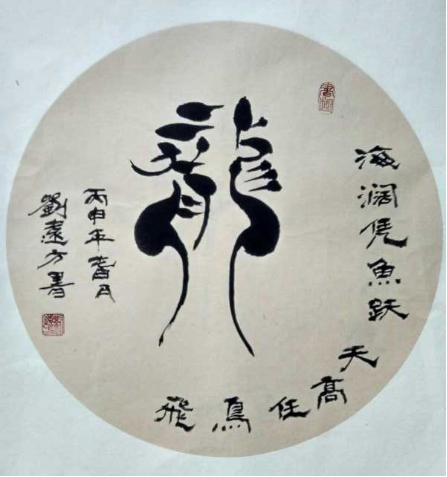 龍
海阔凭魚跃
天高任鳥飛
丙申年月
劉方書